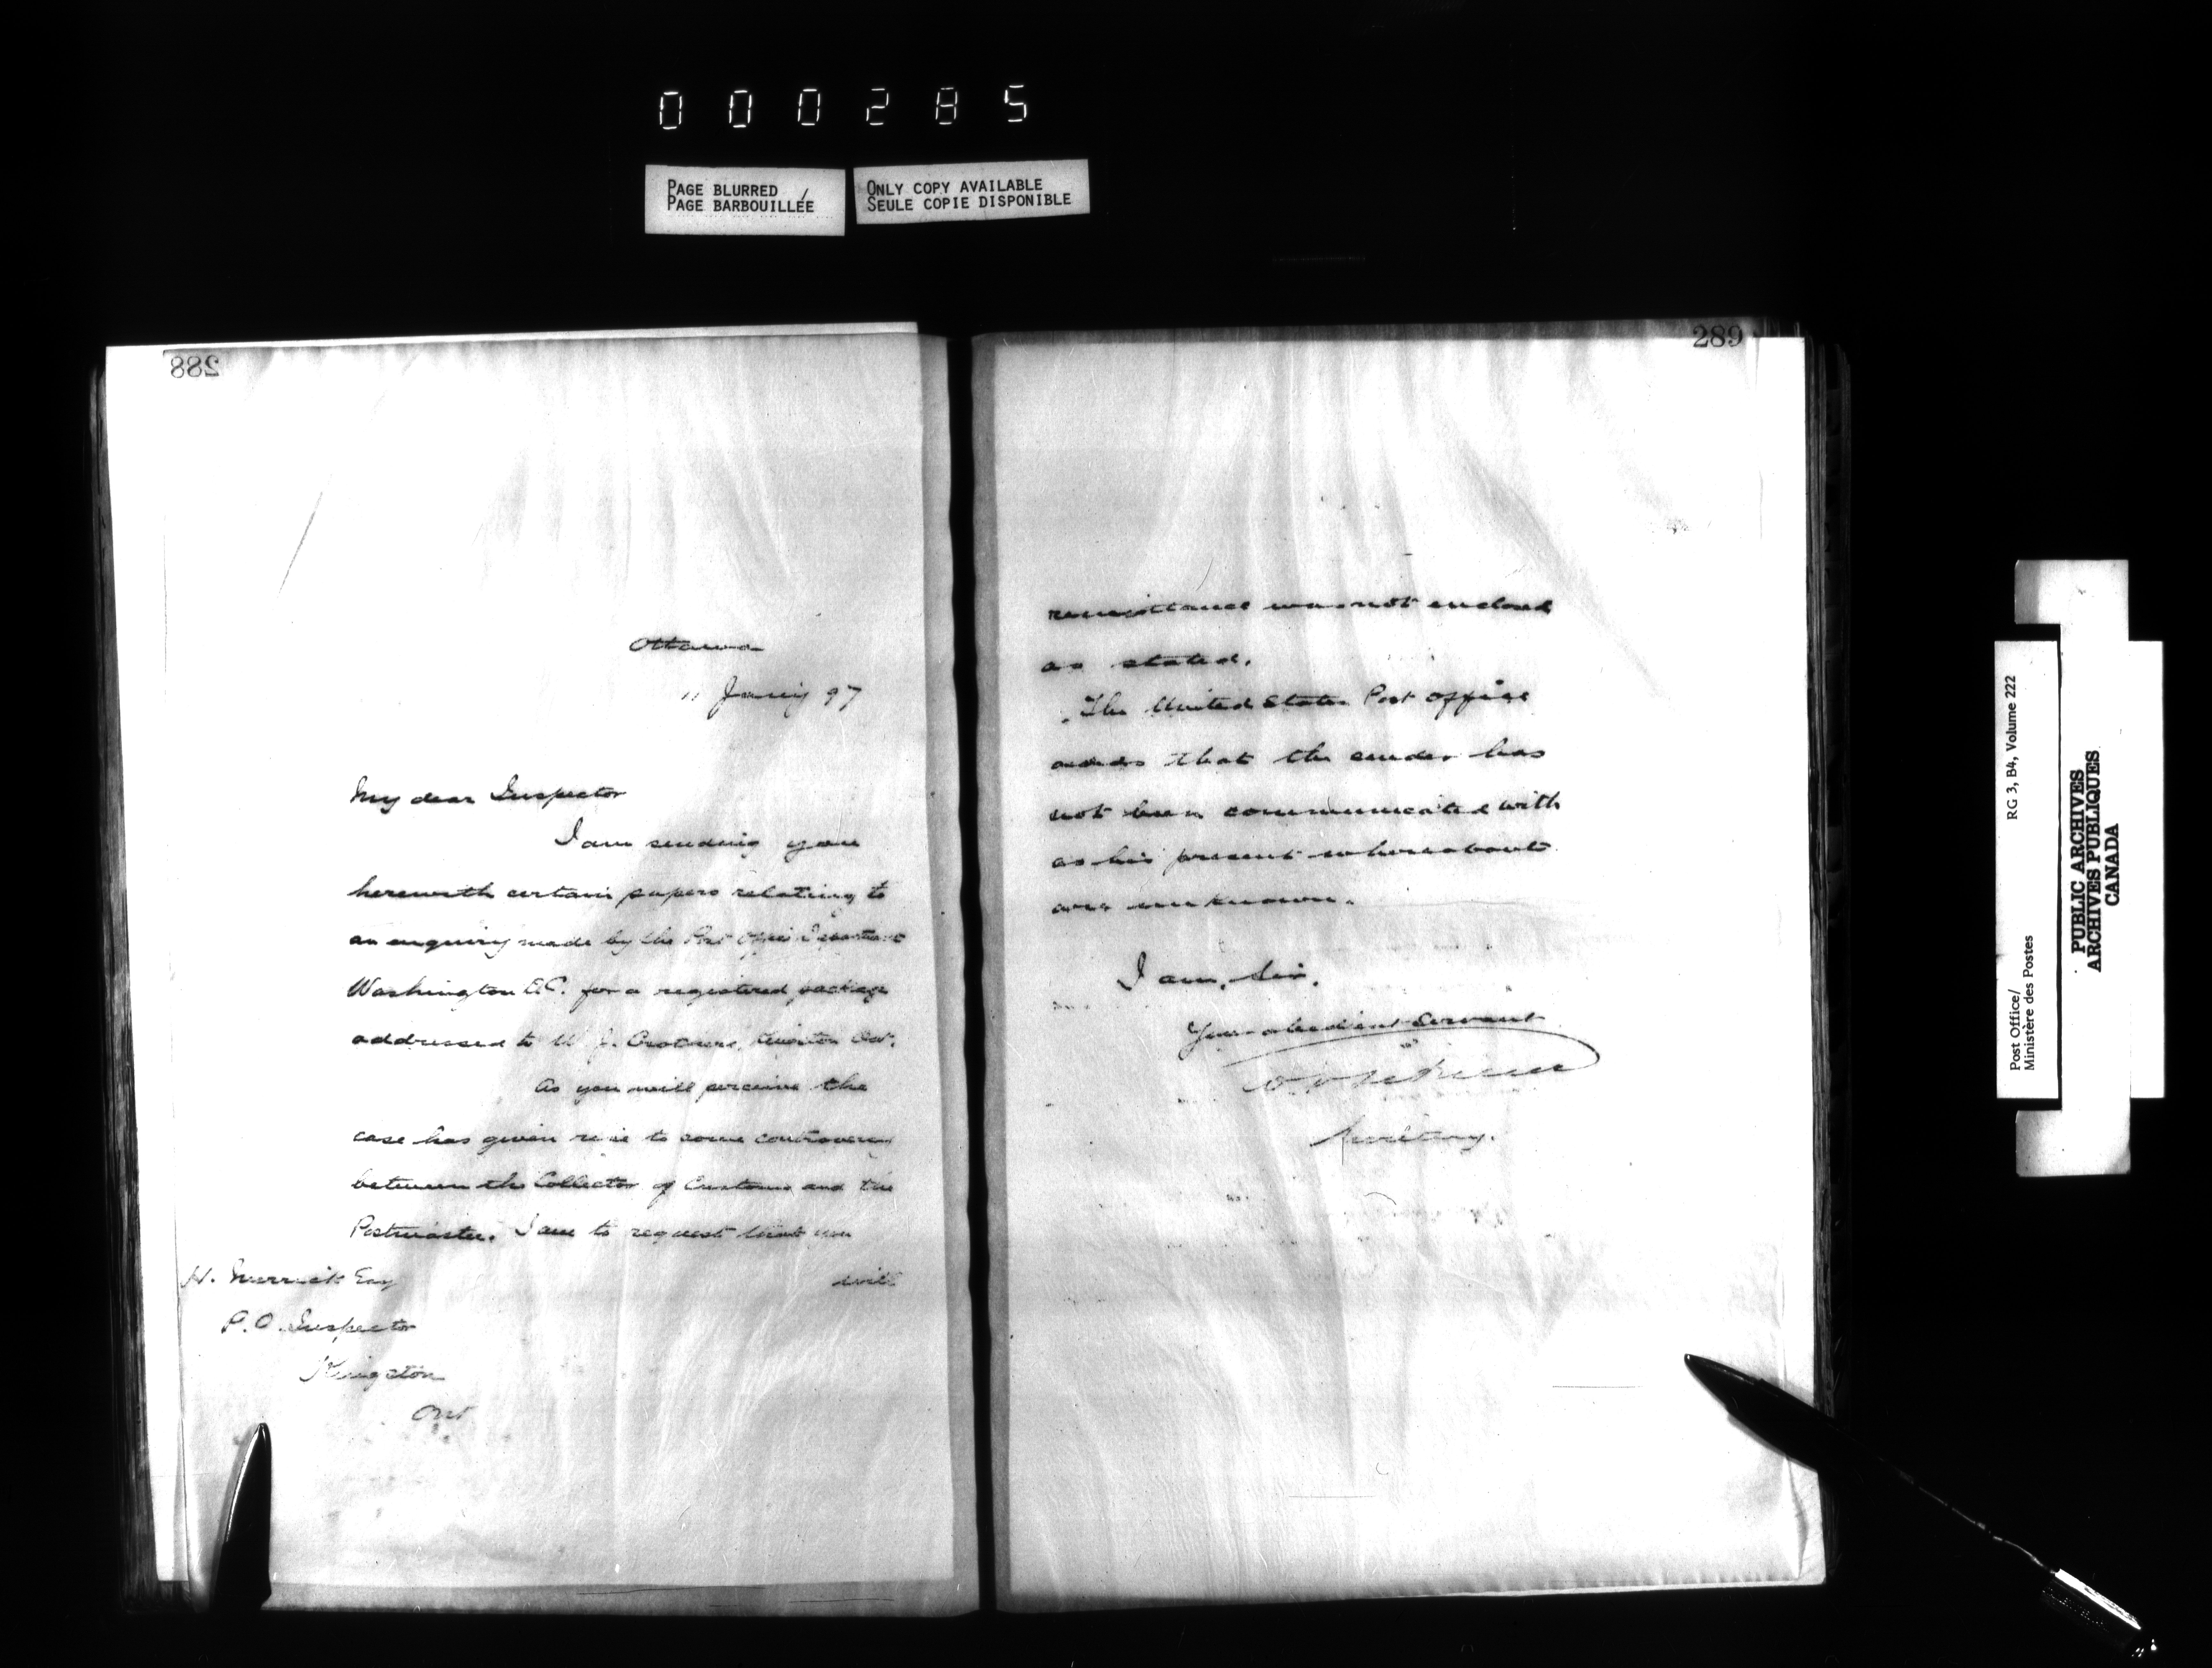 000285
PAGE BLURRED
PAGE BARBOUILLÉE
ONLY COPY AVAILABLE
SEULE COPIE DISPONIBLE
288
Ottawa
11 Jany 97
My dear Inspector
I am sending you
herewith certain papers relating to
an enquiry made by the Post Office Department
Washington D.C. for a registered package
addressed to W. J.
As you will perceive the
case has given rise to some controversy
between the Collector of Customs and the
Postmaster. I am to request that you
will
H. Merrick Esq
P.O. Inspector
Kingston
Ont
289
remittance was not enclosed
as stated.
The United States Post Office
adds that the sender has
not been communicated with
as his present whereabouts
are unknown.
I am, Sir,
Your obedient Servant
Secretary.
Post Office/
Ministère des Postes
RG 3, B4, Volume 222
PUBLIC ARCHIVES
ARCHIVES PUBLIQUES
CANADA